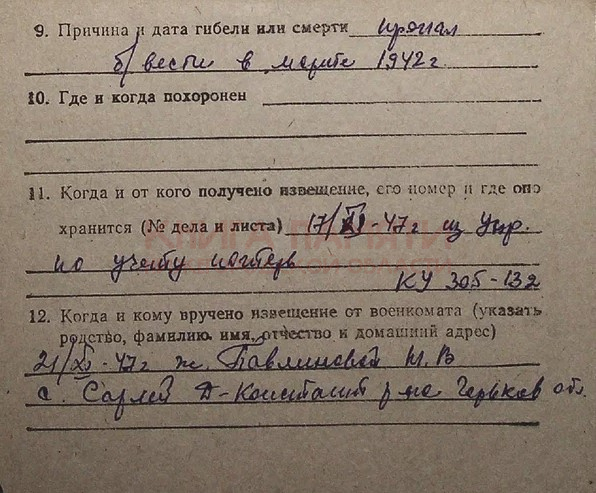 9. Причина и дата гибели или смерти пропал
б/вести в марте 1942 г
10. Где и когда похоронен
11. Когда и от кого получено извещение, его номер и где оно
хранится (№ дела и листа) 17/XI-47 г из Упр.
КНИГА ПАМЯТИ
по учету потерь
КУ 305-132
12. Когда и кому вручено извещение от военкомата (указать
родство, фамилию, имя, отчество и домашний адрес)
21/XI-47 г ж. Павлиновой М. В
с. Сарлей Д-Констант р-на Горьков обл.